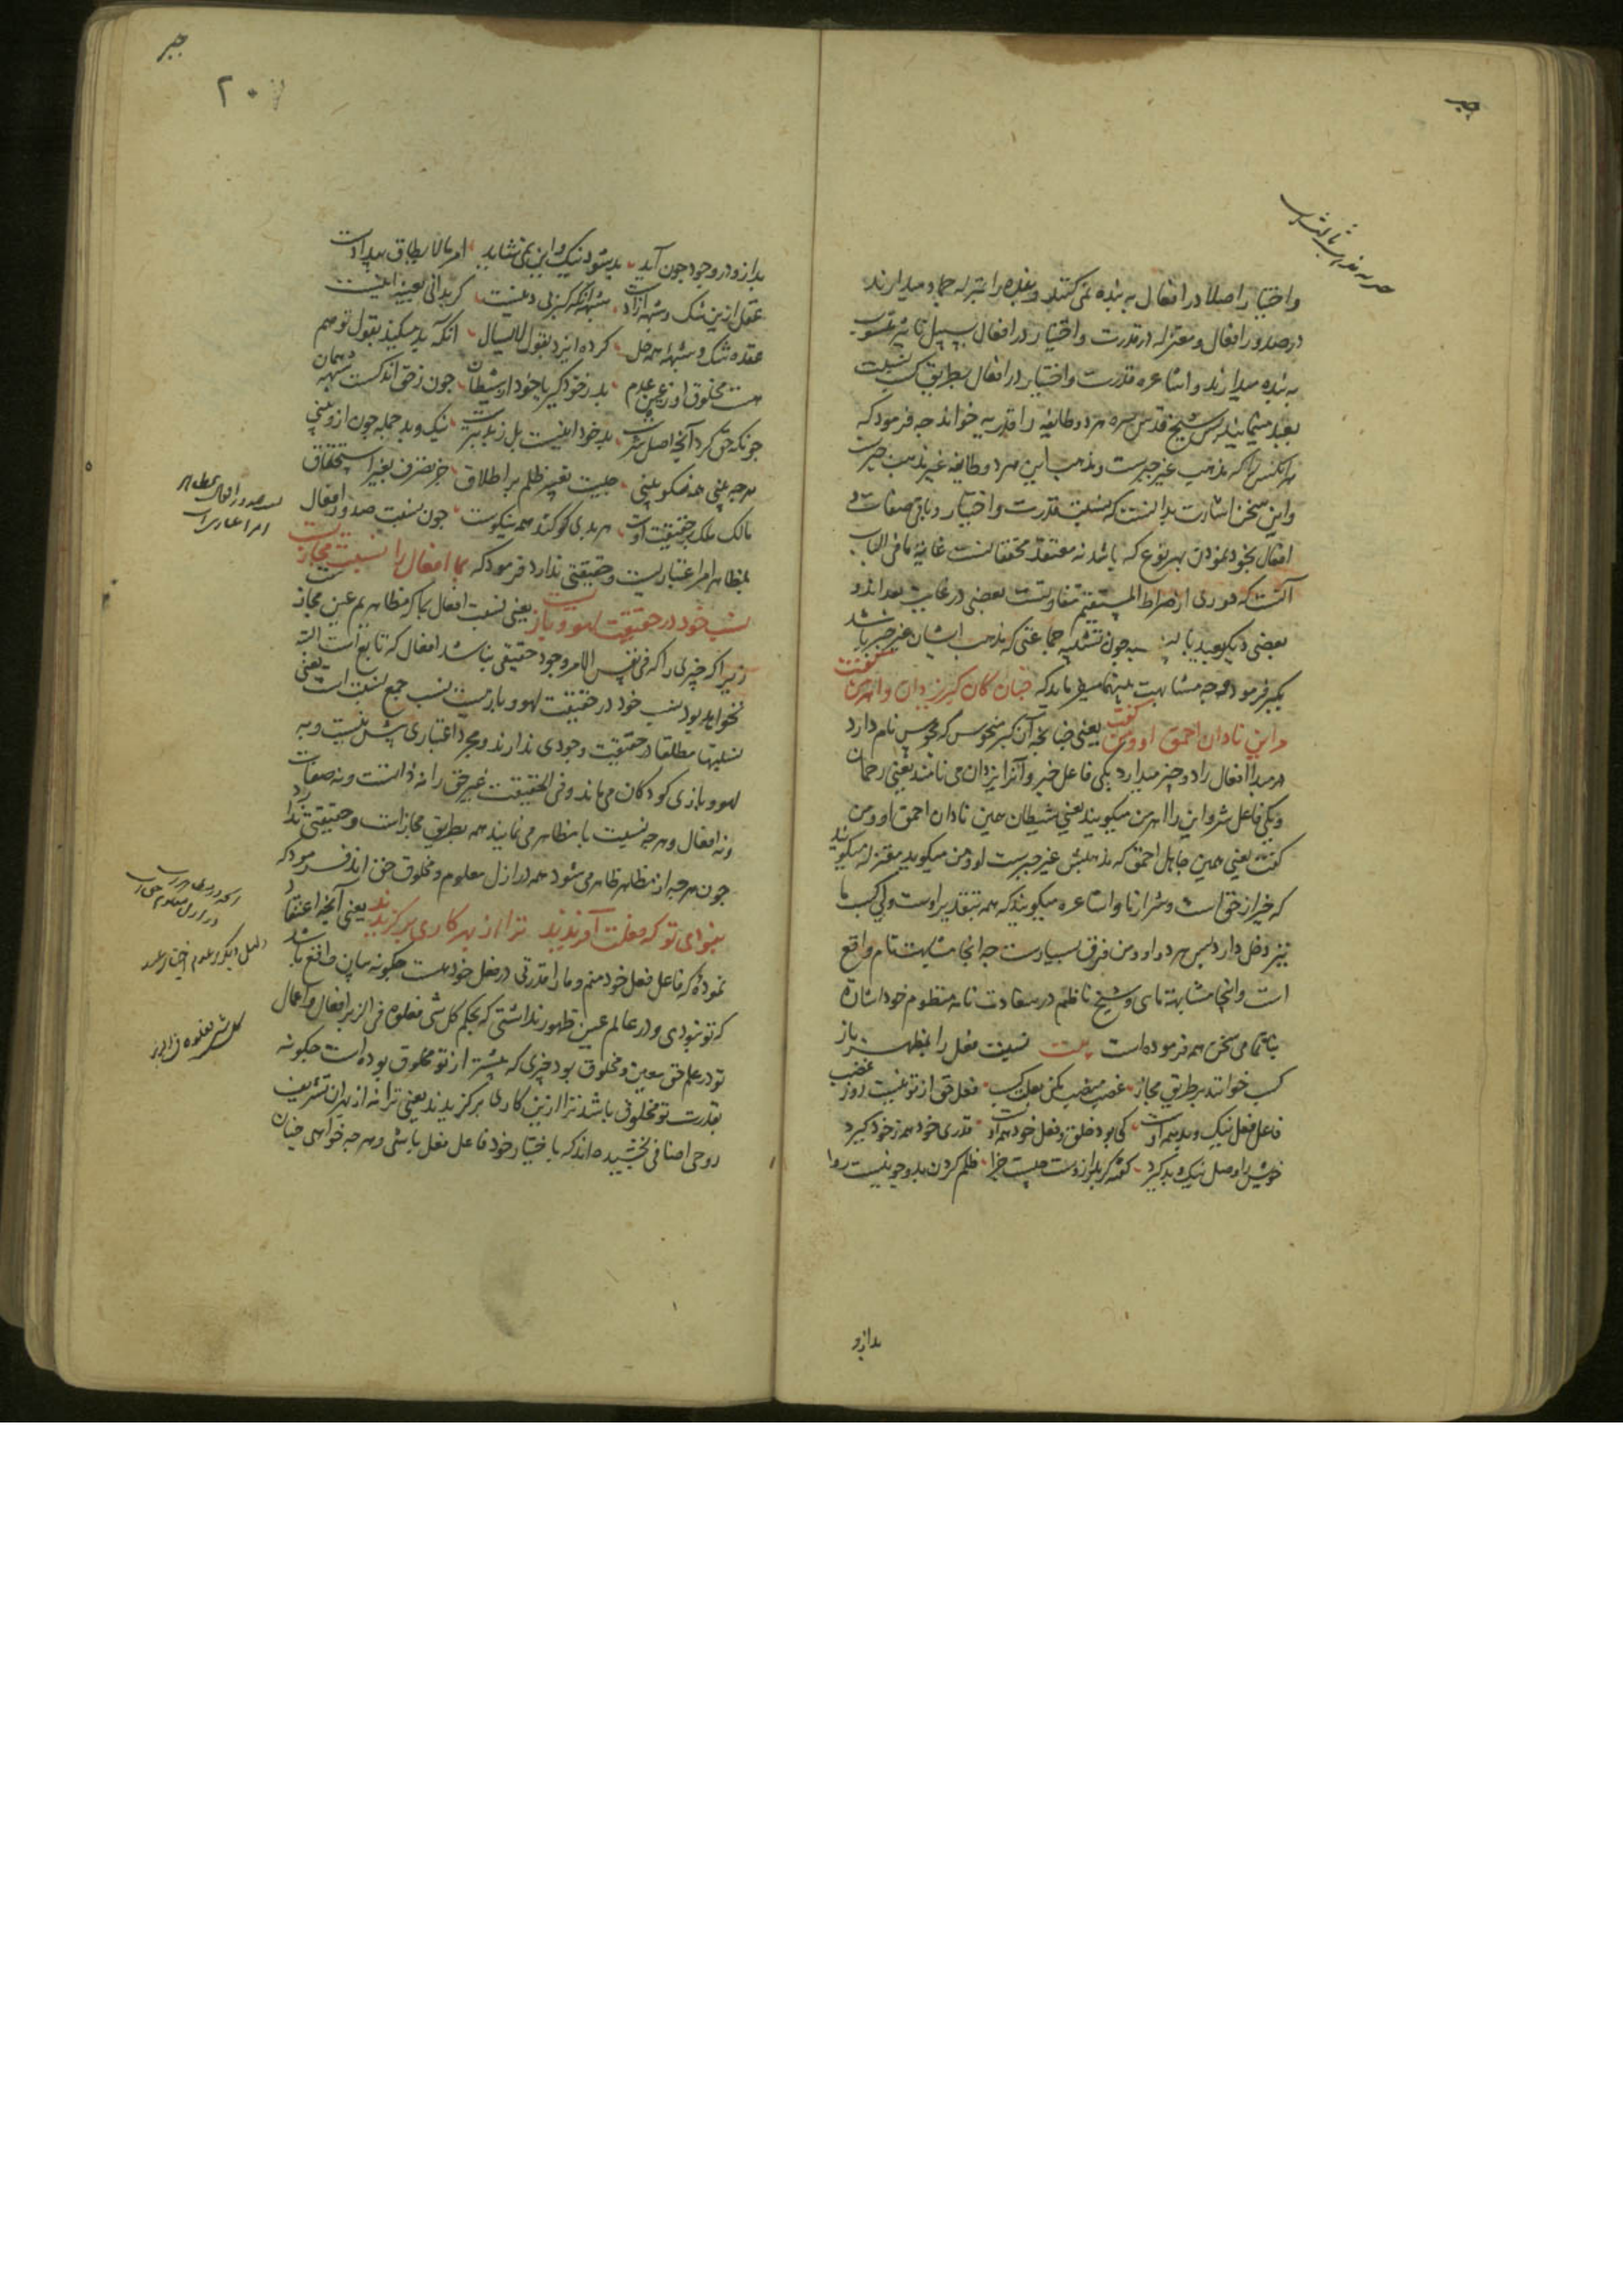 جبر
واختیار را اصلا در افعال به بنده نمی کنند و بنده را بمنزله جماد میدارند
در صدور افعال و معتزله در قدرت و اختیار در افعال بسبیل تاثیر منسوب
به بنده میدارند و اشاعره قدرت و اختیار در افعال بطریق کسب نسبت
بعبد مینمایند پس شیخ قدس سره هر دو طایفه را قدریه خواند چه فرمود که
هر آنکس را که مذهب غیر جبرست و مذهب این هر دو طایفه غیر مذهب جبرست
واین سخن اشارت بدانست که نسبت قدرت و اختیار و باقی صفات و
افعال بخود نمودن بهر نوع که باشد نه معتقد محققانست غایة ما فی الباب
آنست که دوری از صراط المستقیم متفاوتست بعضی در غایت بعد اند و
بعضی دیکر بعید یا نه چون تشبیه جماعتی که مذهب ایشان غیر جبر باشد
بکبر فرموده وجه مشابهت میفرماید که چنان کان کبر یزدان و اهرمن کفت
مر این نادان احمق او و من کفت یعنی چنانچه آن کبر منحوس که مجوس نام دارد
مر مبدا افعال را دو چیز میدارد یکی فاعل خیر و آنرا یزدان می نامند یعنی رحمان
ویکی فاعل شر و این را اهرمن میکویند یعنی شیطان همین نادان احمق او و من
کفت یعنی همین جاهل احمق که مذهبش غیر جبرست او و من میکوید معتزله میکویند
که خیر از حق است و شر از ما و اشاعره میکویند که همه بتقدیر اوست ولی کسب ما
نیز دخل دارد پس هر دو او و من فرق بسیارست چه آنجا مشابهت تام واقع
است و اینجا مشابهة ما سی و شیخ ناظم در سعادت نامه منظوم خود اشارة
باتمامی سخن همه فرموده است بیت نسبت فعل را بمظهر باز
کسب خوانند بر طریق مجاز غضب
فاعل فعل نیک و بد همه اوست کی بود خلق و فعل خود همه او قدری خود همه ز خود کیرد
خویش را اصل نیک و بد کیرد کفته کر بد ازوست چیست جزا ظلم کردن بدو چو نیست روا
بدازو
جبر
۲۰۷
بد ازو در وجود چون آید بد بشود نیک و این نمی شاید امر ما لا یطاق بیدادست
عقل ازین شک و شبهه آزادست
عقده شک و شبهه همه حل کرده ایزد بقول لا یسال آنکه بد میکند بقول تو هم
هست مخلوق او ز عین عدم بد ز خود کیر یا خود از شیطان چون ز حق اند کست شبهه همان
چونکه حق کرد آنچه اصل شرست بد خود اینست بل ز بد بترست نیک و بد جمله چون ازو بینی
هر چه بینی همه نکو بینی چیست تفسیر ظلم بر اطلاق جز تصرف بغیر استحقاق
مالک ملک بر حقیقت اوست هر بدی کو کند همه نیکوست چون نسبت صدور افعال
بمظاهر امر اعتباریست و حقیقتی ندارد فرمود که بما افعال را نسبت مجازیست
نسب خود در حقیقت لهو و بازیست یعنی نسبت افعال بما که مظاهریم عین مجاز
زیرا که چیزی را که فی نفس الامر وجود حقیقی نباشد افعال که تابع است البته
نخواهد بود نسب خود در حقیقت لهو و بازیست نسب جمع نسبت است یعنی
نسبتها مطلقا در حقیقت وجودی ندارند و مجرد اعتباری بیش نیست و به
لهو و بازی کودکان می ماند و فی الحقیقت غیر حق را نه ذاتست و نه صفات
ونه افعال و هر چه نسبت با مظاهر می نمایند همه بطریق مجاز است و حقیقتی ندارد
چون هر چه از مظاهر ظاهر می شود همه در ازل معلوم و مخلوق حق اند فرمود که
نبودی تو که فعلت آفریدند ترا از بهر کاری برکزیدند یعنی آنچه اعتقاد
نموده که فاعل فعل خود منم و ما را قدرتی در فعل خود هست چکونه بیان واقع باشد
که تو نبودی و در عالم عین ظهور نداشتی که بحکم کل شی فعلوه فی الزبر افعال و اعمال
تو در علم حق معین و مخلوق بود چیزی که پیشتر از تو مخلوق بوده است چکونه
بقدرت تو مخلوق باشد ترا از بن کاری برکزیدند یعنی ترا نه از بهر آن تشریف
روحی اضافی بخشیده اند که باختیار خود فاعل فعل باشی و هر چه خواهی چنان
کل شی فعلوه فی الزبر